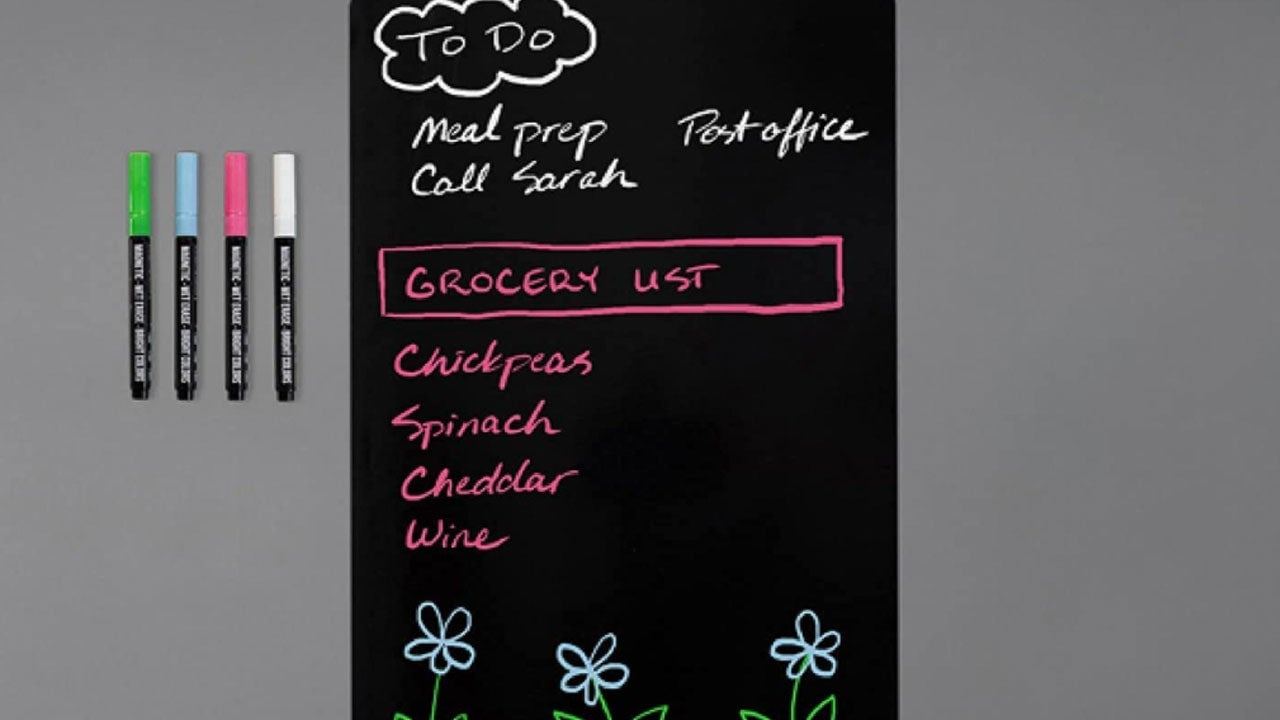 To Do
Meal prep Post office
Call Sarah
GROCERY LIST
Chickpeas
Spinach
Cheddar
Wine
MAGNETIC · WET ERASE · BRIGHT COLORS
MAGNETIC · WET ERASE · BRIGHT COLORS
MAGNETIC · WET ERASE · BRIGHT COLORS
MAGNETIC · WET ERASE · BRIGHT COLORS